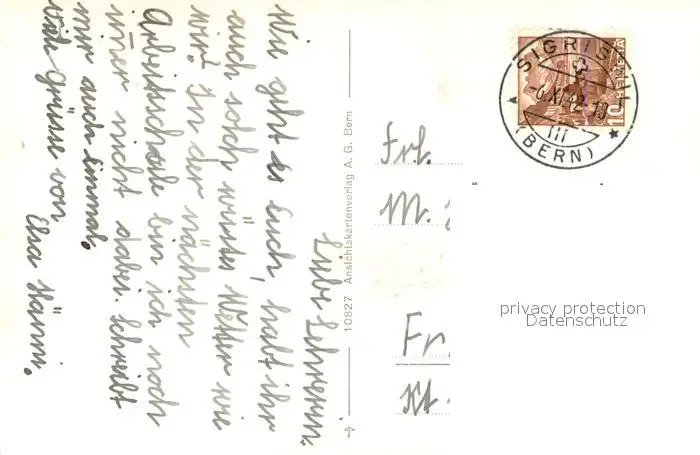 Liebe Lehrerin.
Wie geht es Euch, habt ihr
auch solch wüstes Wetter wie
wir? In der nächsten
Arbeitschule bin ich noch
imer nicht dabei. Schreibt
mir auch einmal.
Viele Grüsse von
Elsa Hänni.
10827 Ansichtskartenverlag A. G. Bern
SIGRISWIL
-6.XI.42-19
III
(BERN)
HELVETIA
10
Frl.
M.
Fr
Kt.
privacy protection
Datenschutz